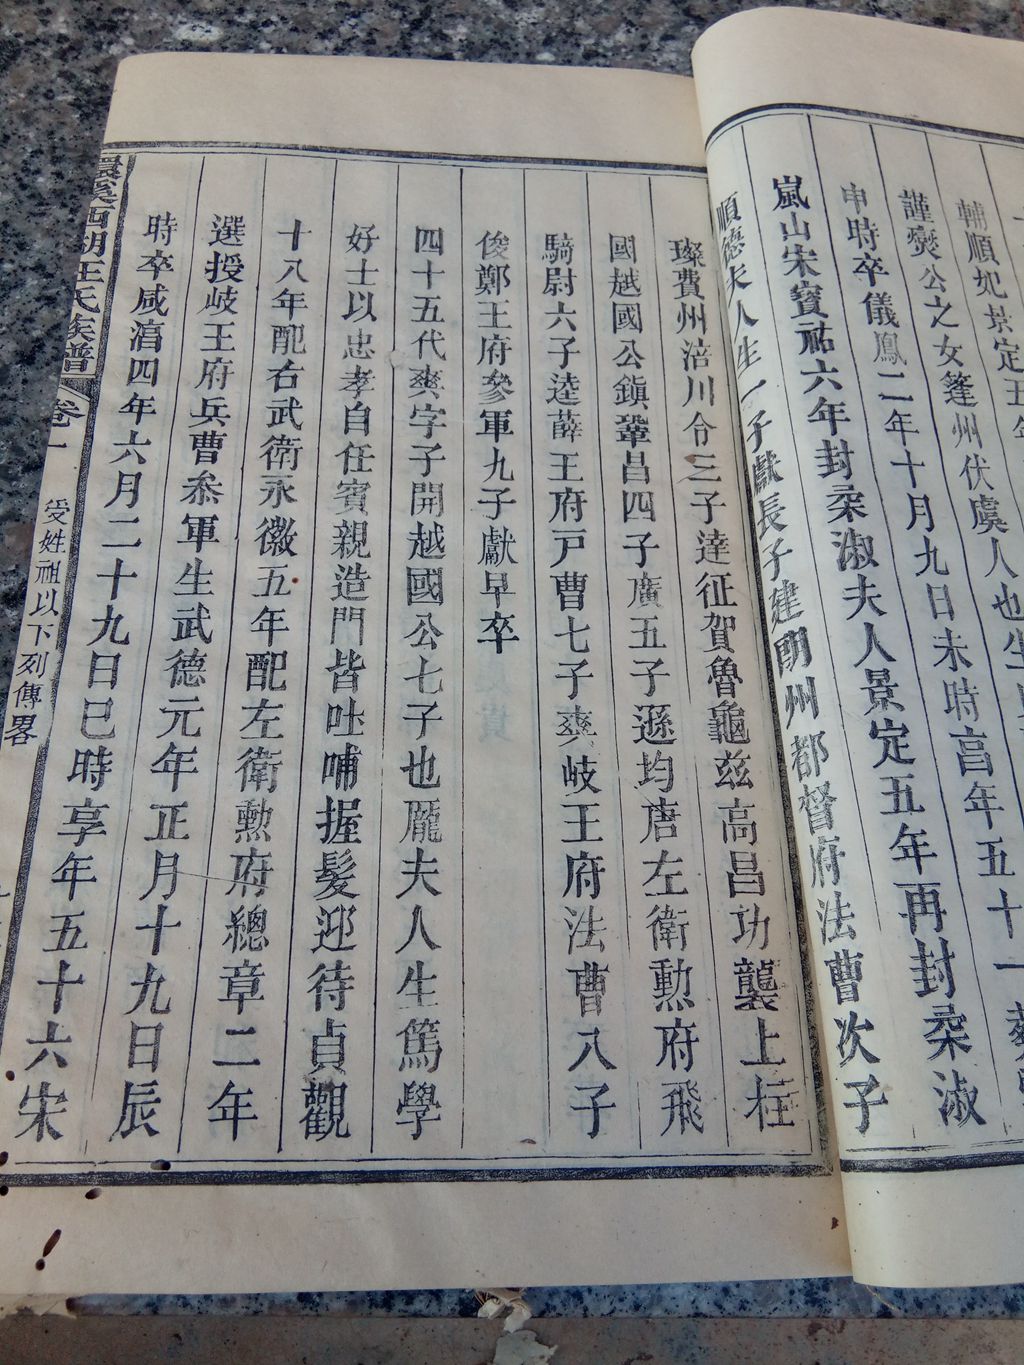 輔順妃景定五年
謹㸅公之女篷州伏虞人也生
申時卒儀鳳二年十月九日未時亯年五十一葬
嵐山宋寳祐六年封柔淑夫人景定五年再封柔淑
順德夫人生一子獻長子建朗州都督府法曹次子
璨費州涪川令三子達征賀魯龜兹高昌功襲上柱
國越國公鎭鞏昌四子廣五子遜均唐左衛勲府飛
騎尉六子逵薛王府戸曹七子爽岐王府法曹八子
俊鄭王府參軍九子獻早卒
四十五代爽字子開越國公七子也龎夫人生篤學
好士以忠孝自任賓親造門皆吐哺握髮迎待貞觀
十八年配右武衛永徽五年配左衛勲府總章二年
選授岐王府兵曹叅軍生武德元年正月十九日辰
時卒咸淳四年六月二十九日巳時享年五十六宋
環溪西湖汪氏族譜 卷一 受姓祖以下列傳畧